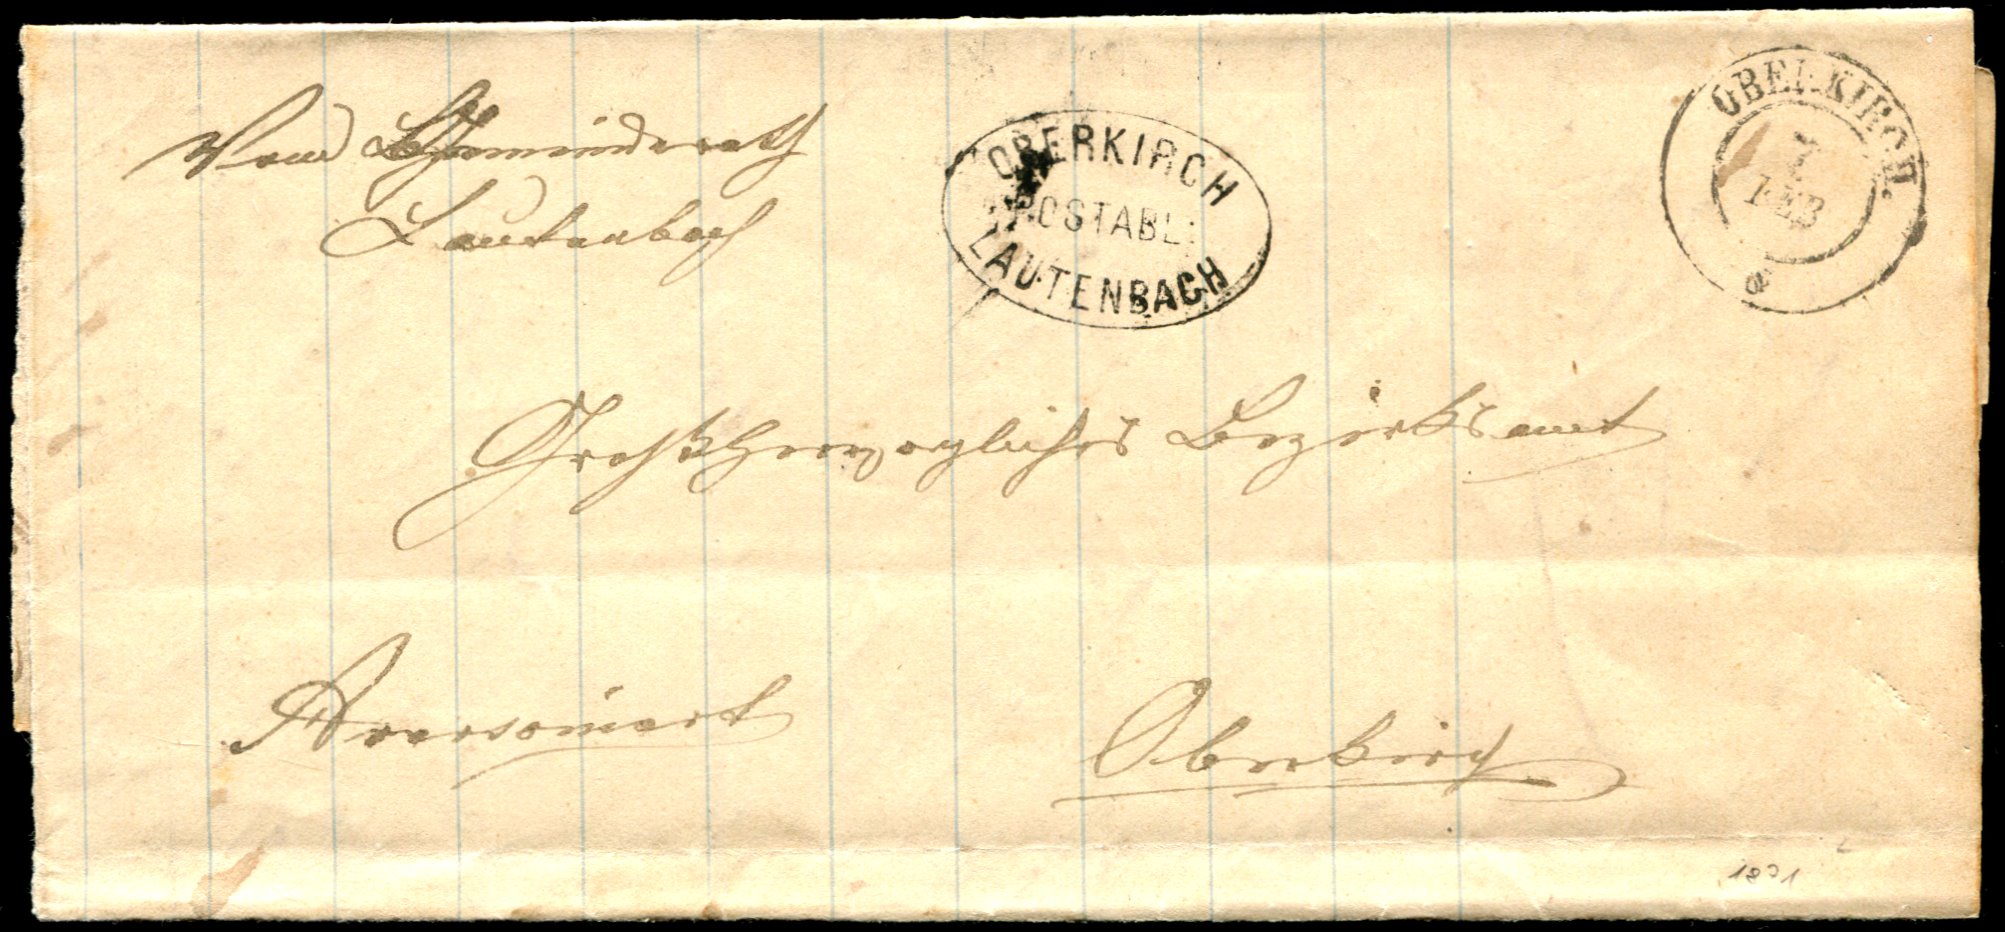 Vom Gemeinderath
Lautenbach
OBERKIRCH
POSTABL:
LAUTENBACH
OBERKIRCH.
7
FEB
Großherzogliches Bezirksamt
Aversoniert
Oberkirch